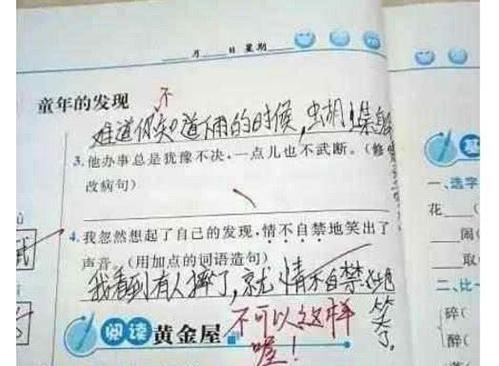 月 日 星期
童年的发现
不
难道你知道下雨的时候,
3.他办事总是犹豫不决,一点儿也不武断。(修
改病句)
4.我忽然想起了自己的发现,情不自禁地笑出了
声音。(用加点的词语造句)
我看到有人摔了,就情不自禁地
笑了。
阅读 黄金屋
不可以这样
喔!
一、选字
花 (
闹(
取(
二、比一
碎(
醉(